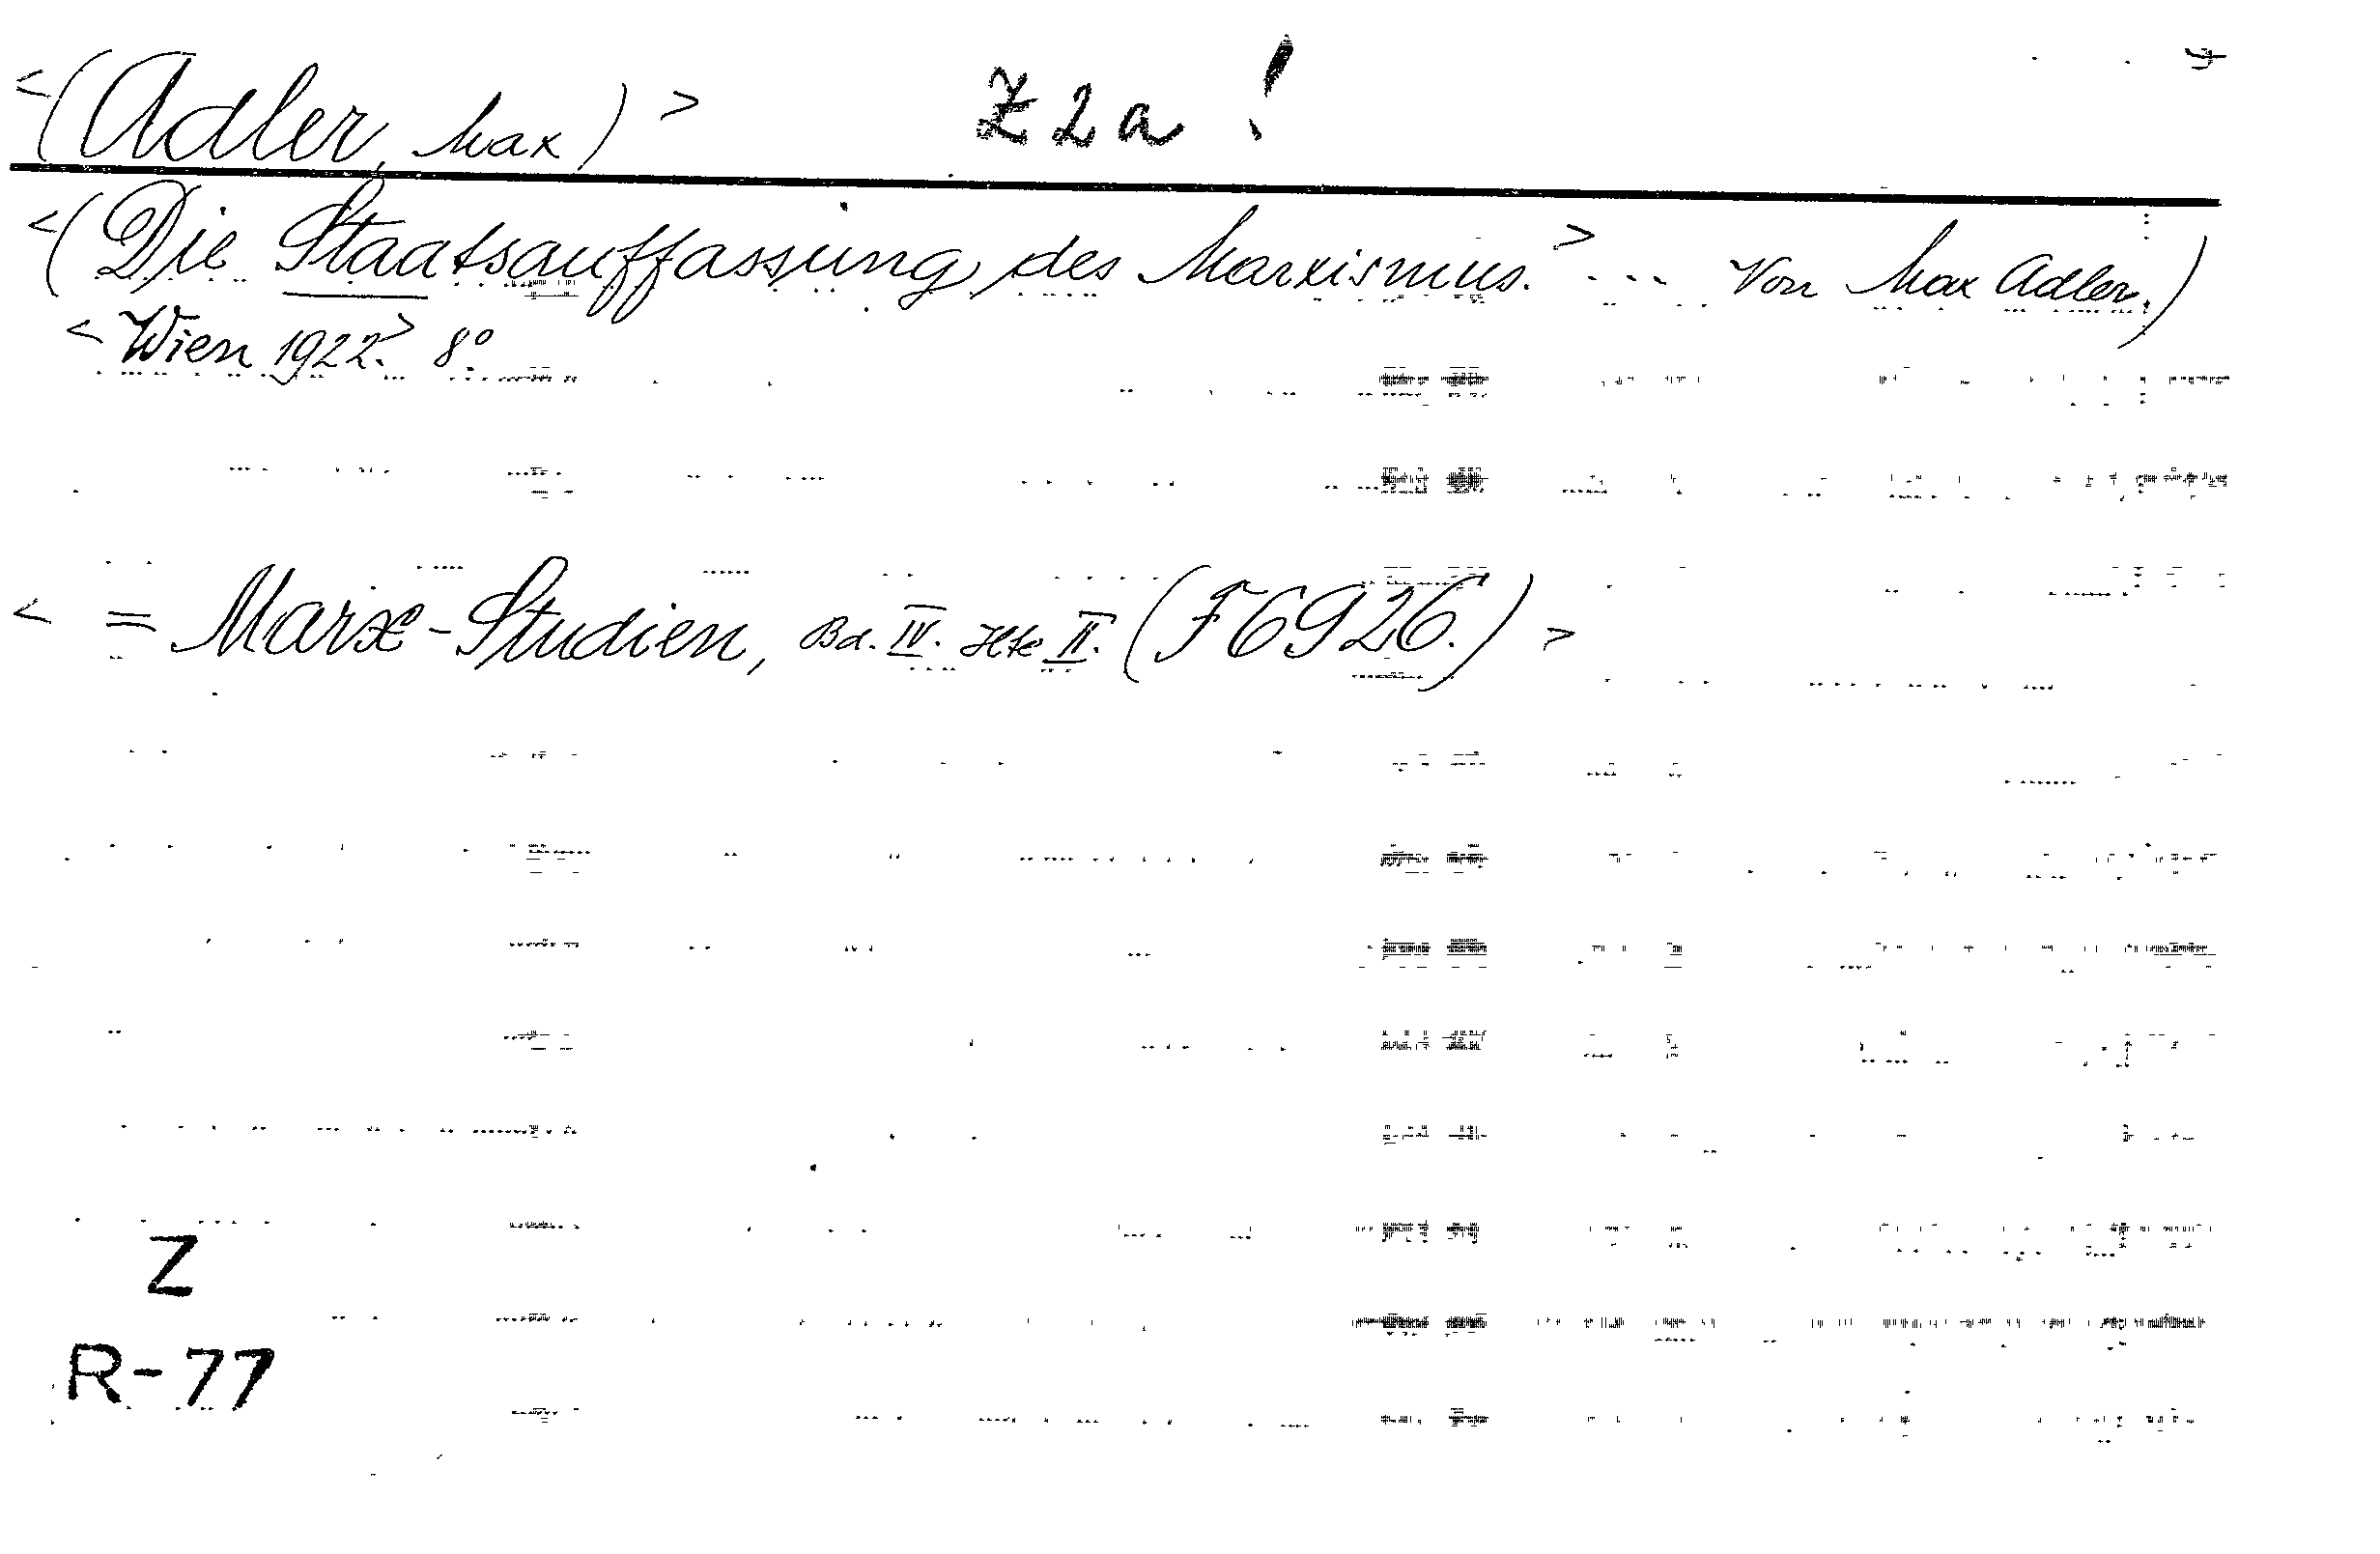 <(Adler, Max)> Z2a!
<(Die Staatsauffassung des Marxismus.> ... Von Max Adler.)
<Wien 1922.> 8°.
< = Marx-Studien, Bd. IV. Hte II. (F6926.) >
Z
R-77